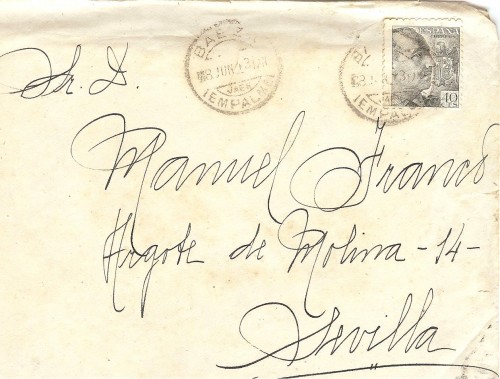 BAEZA
JAEN
(EMPALME)
ESPAÑA
40
Sr. D.
Manuel Franco
Argote de Molina - 14 -
Sevilla